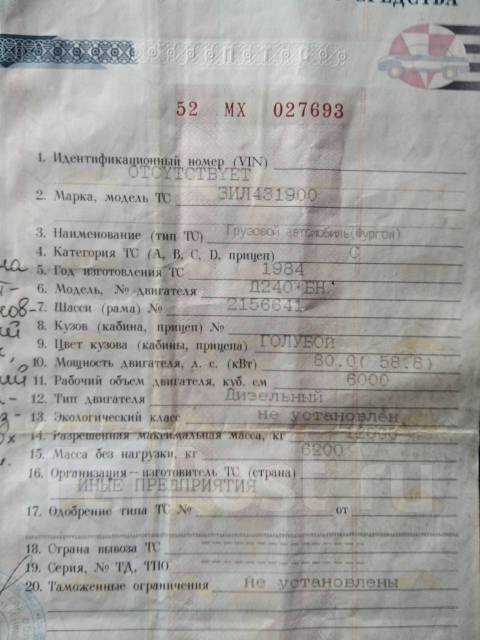 СРЕДСТВА
52 МХ 027693
1. Идентификационный номер (VIN)
ОТСУТСТВУЕТ
2. Марка, модель ТС ЗИЛ431900
3. Наименование (тип ТС) Грузовой автомобиль(фургон)
4. Категория ТС (А, В, С, D, прицеп) С
5. Год изготовления ТС 1984
6. Модель, № двигателя Д240*БН*
7. Шасси (рама) № 2156641
8. Кузов (кабина, прицеп) №
9. Цвет кузова (кабины, прицепа) ГОЛУБОЙ
10. Мощность двигателя, л. с. (кВт) 80.0( 58.8)
11. Рабочий объем двигателя, куб. см 6000
12. Тип двигателя Дизельный
13. Экологический класс не установлен
14. Разрешенная максимальная масса, кг
15. Масса без нагрузки, кг 6200
16. Организация — изготовитель ТС (страна)
ИНЫЕ ПРЕДПРИЯТИЯ
17. Одобрение типа ТС № от
18. Страна вывоза ТС
19. Серия, № ТД, ТПО
20. Таможенные ограничения не установлены